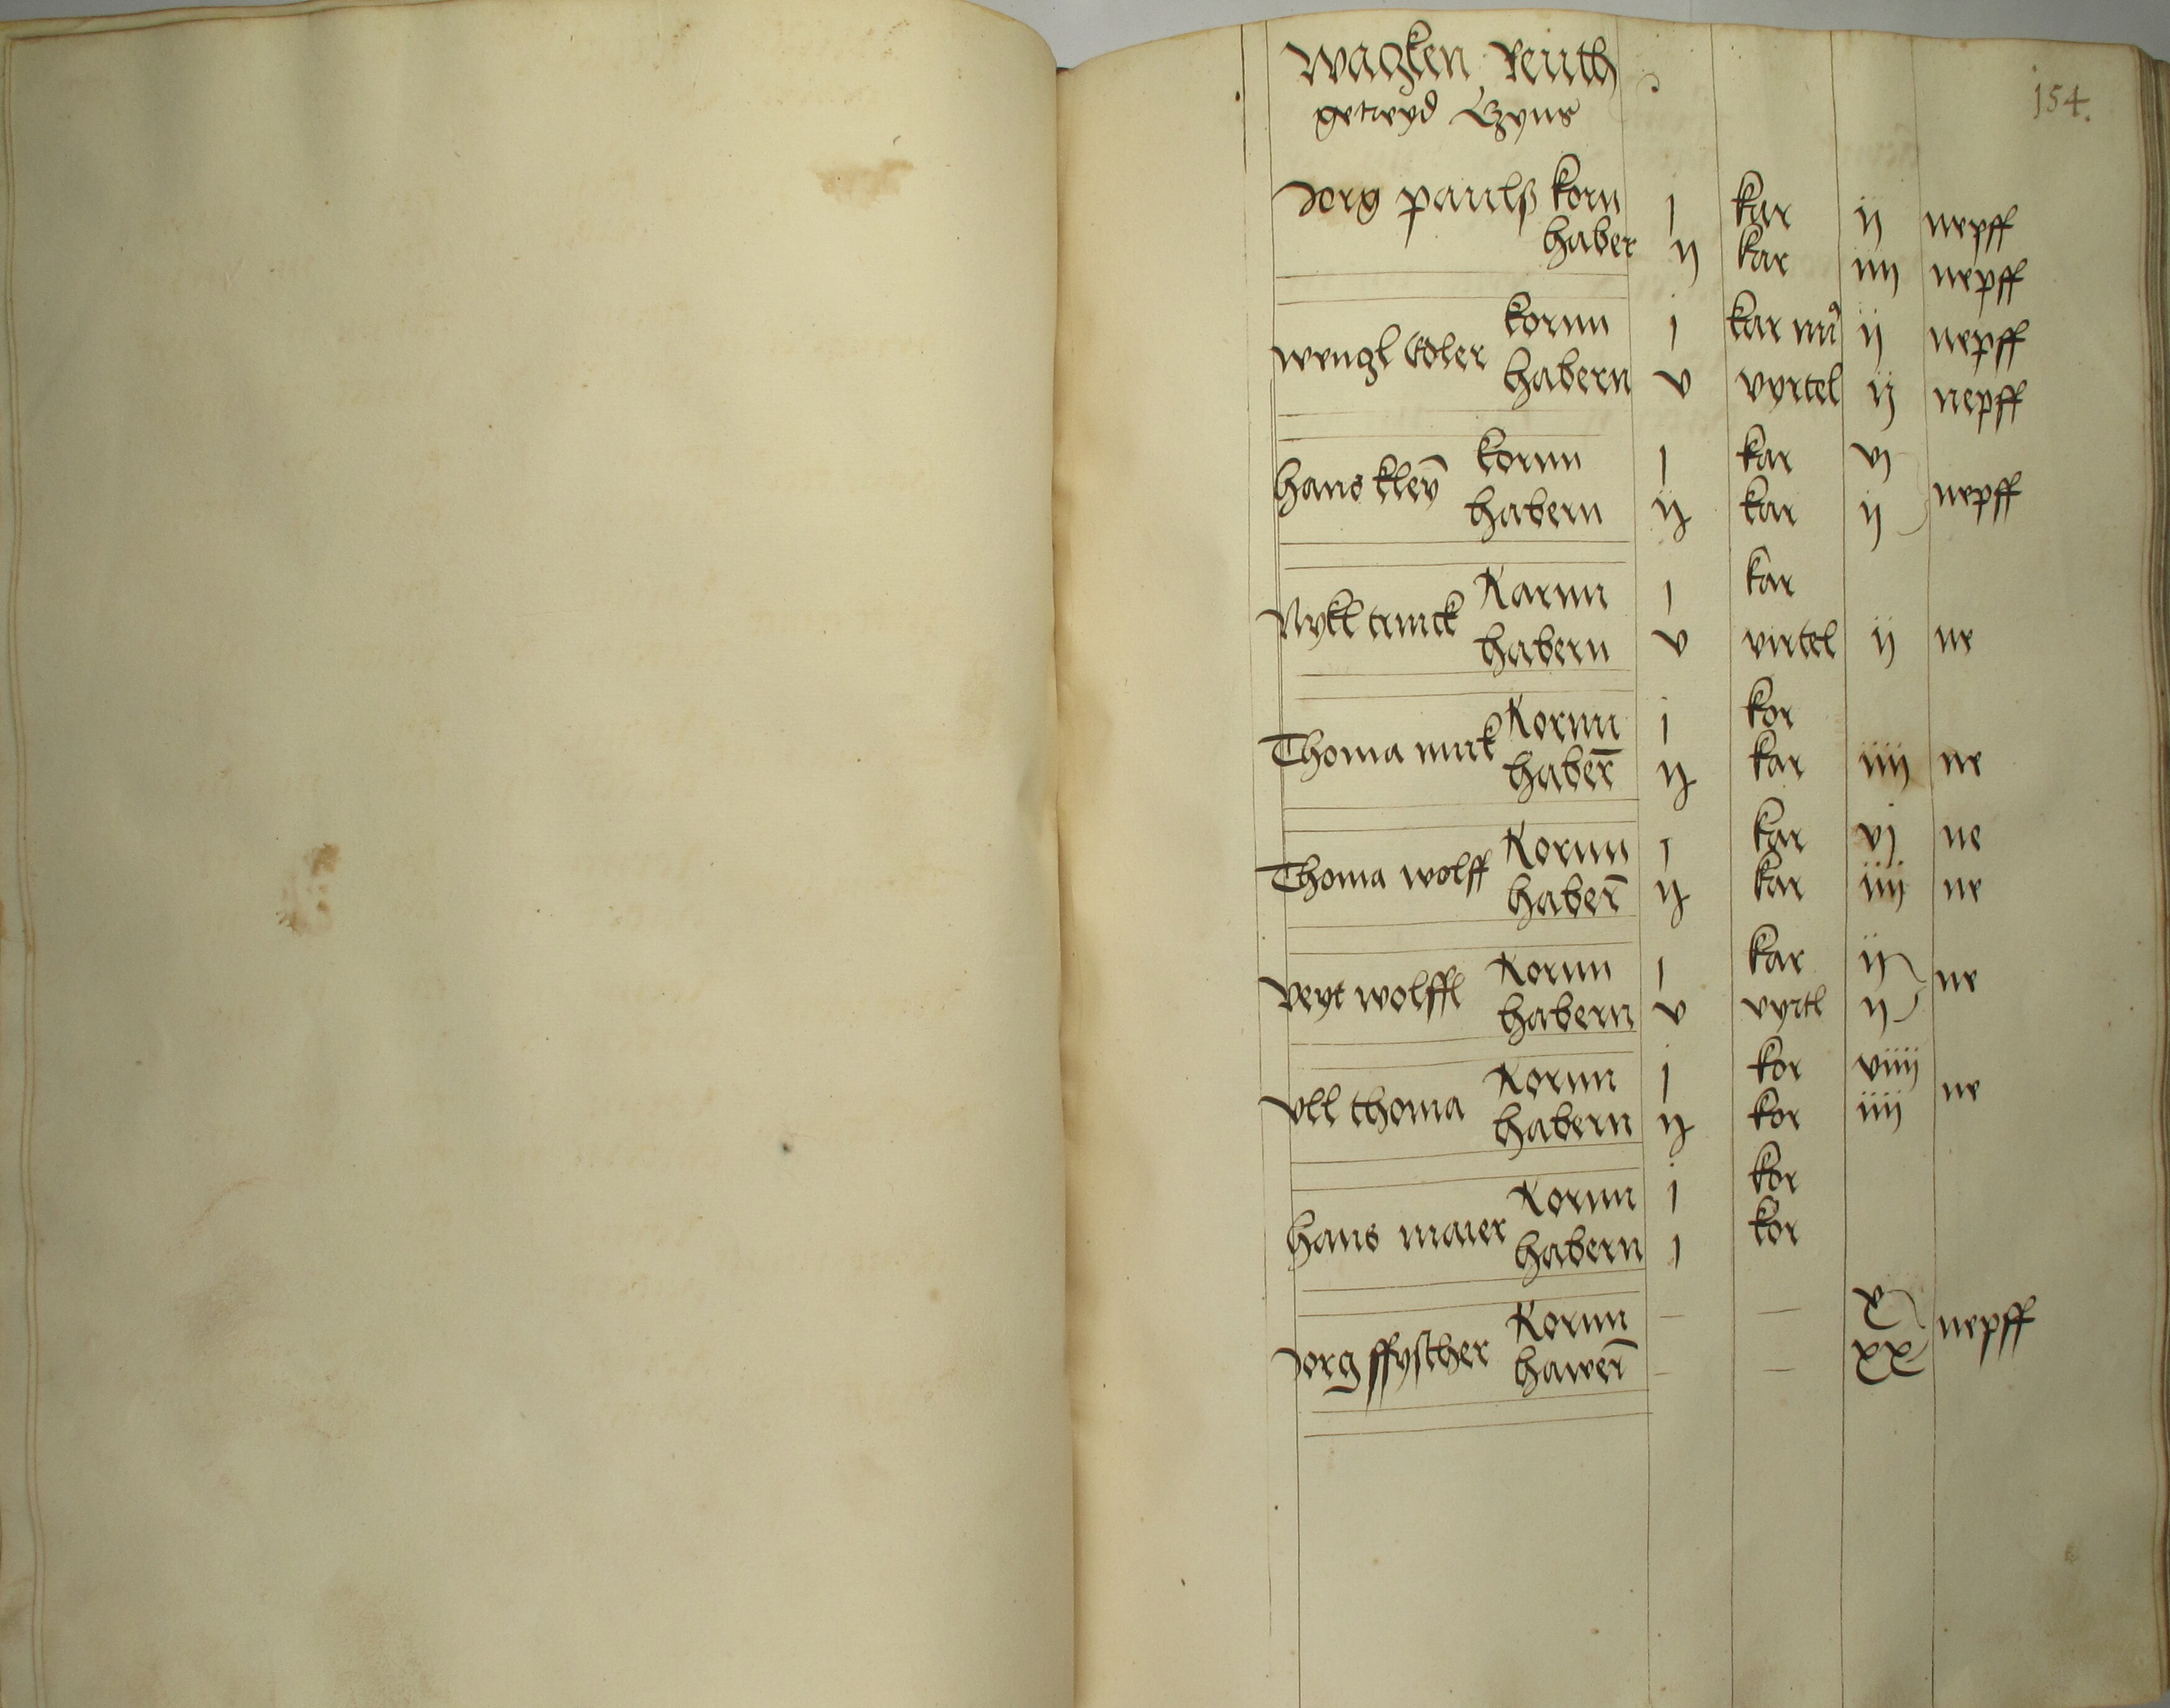 154.
Wazken Reuth
getreyd Czyns
Jorg paulß korn j kar ij nepff
haber ij kar iiij nepff
wenzl koler kornn j kar mi ij nepff
habern v vyrtel ij nepff
hans kleȳ kornn j kar vj nepff
habern ij kar ij
Nykl trnick Karnn j kar
habern v virtel ij ne
Thoma mirk Kornn j kor
haber̄ ij kar iiij ne
Thoma wolff Kornn j kar vj ne
haber̄ ij kar iiij ne
Veyt wolffl Kornn j kar ij ne
habern v vyrtl ij
Vll thoma Kornn j kor viiij ne
habern ij kor iiij
hans maier Kornn j kor
habern j kor
Jorg ffyscher Kornn – – x nepff
hawer̄ – – xx